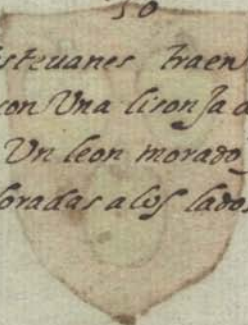 50
steuanes traen
con Una lisonja a
Un leon morado
oradas a los lado